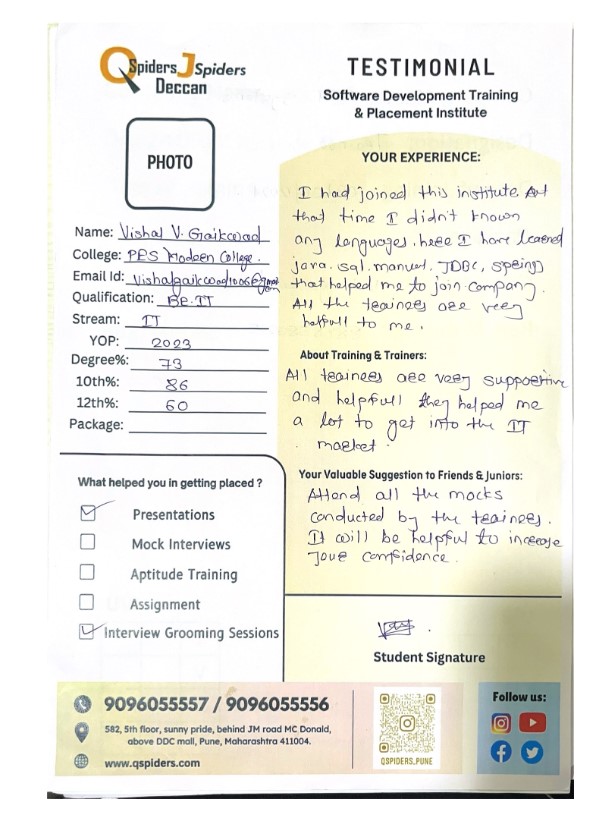 QSpiders JSpiders
Deccan
PHOTO
Name: Vishal V. Gaikwad
College: PES Modern College.
Email Id:
Qualification: BE.IT
Stream: IT
YOP: 2023
Degree%: 73
10th%: 86
12th%: 60
Package:
What helped you in getting placed ?
Presentations
Mock Interviews
Aptitude Training
Assignment
Interview Grooming Sessions
TESTIMONIAL
Software Development Training
& Placement Institute
YOUR EXPERIENCE:
I had joined this institute At
that time I didn't known
any languages. here I have learned
java. sql. manual. JDBC, spring
that helped me to join company.
All the trainers are very
helfull to me.
About Training & Trainers:
All trainers are very supportive
and helpfull they helped me
a lot to get into the IT
market.
Your Valuable Suggestion to Friends & Juniors:
Attend all the mocks
conducted by the trainers.
It will be helpful to increase
your confidence.
Student Signature
9096055557 / 9096055556
582, 5th floor, sunny pride, behind JM road MC Donald,
above DDC mall, Pune, Maharashtra 411004.
www.qspiders.com
QSPIDERS_PUNE
Follow us: